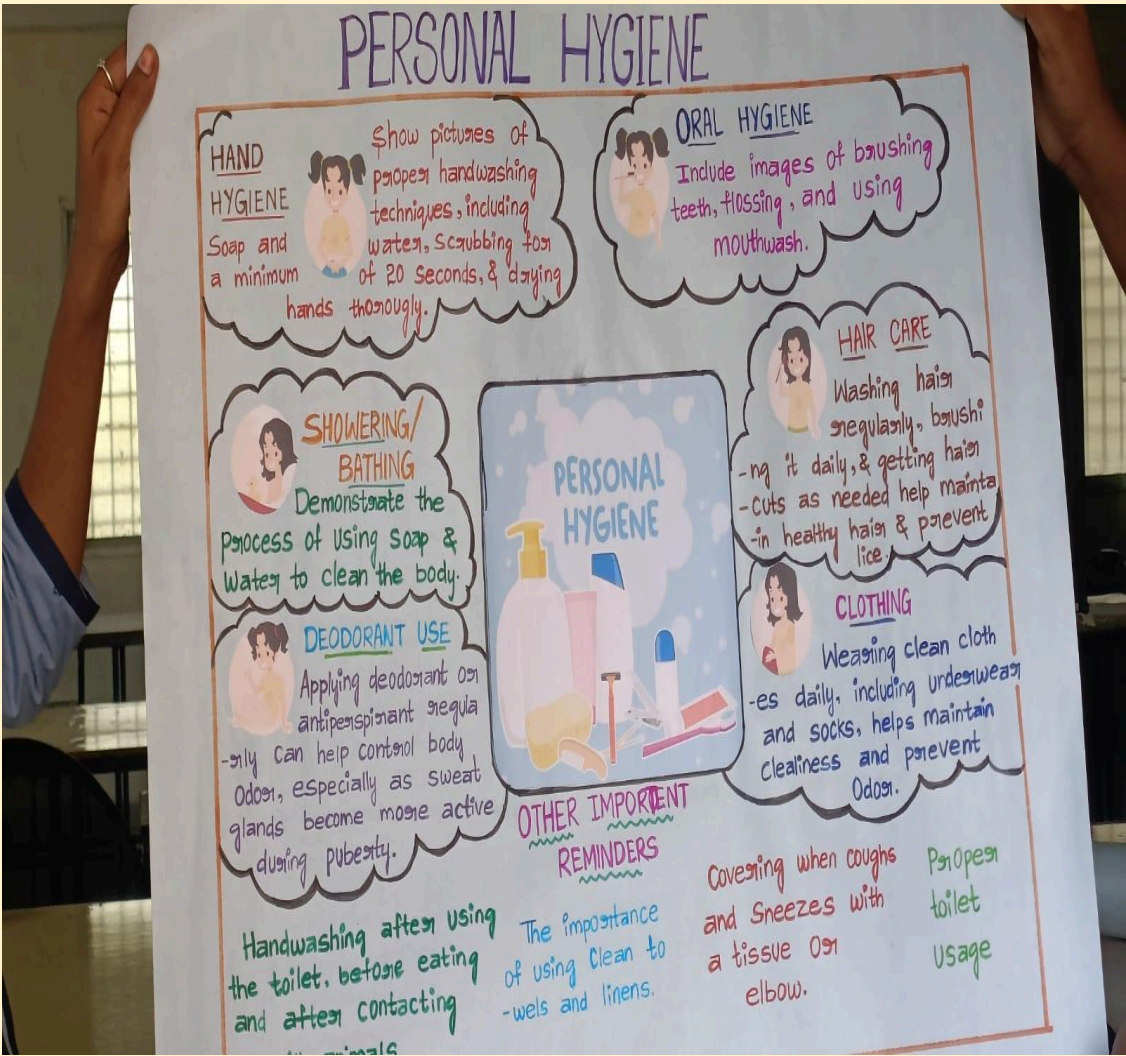 PERSONAL HYGIENE
HAND
HYGIENE
Soap and
a minimum
Show pictures of
proper handwashing
techniques, including
water, scrubbing for
of 20 Seconds, & drying
hands thorougly.
ORAL HYGIENE
Include images of brushing
teeth, flossing, and using
mouthwash.
SHOWERING/
BATHING
Demonstrate the
process of using soap &
water to clean the body.
HAIR CARE
Washing hair
regularly, brushi
-ng it daily, & getting hair
-cuts as needed help mainta
-in healthy hair & prevent
lice.
PERSONAL
HYGIENE
DEODORANT USE
Applying deodorant or
antiperspirant regula
-rly can help control body
Odor, especially as sweat
glands become more active
during puberty.
CLOTHING
Wearing clean cloth
-es daily, including underwear
and socks, helps maintain
clealiness and prevent
Odor.
OTHER IMPORTENT
REMINDERS
Handwashing after using
the toilet, before eating
and after contacting
animals
The importance
of using clean to
-wels and linens.
Covering when coughs
and Sneezes with
a tissue or
elbow.
Proper
toilet
usage